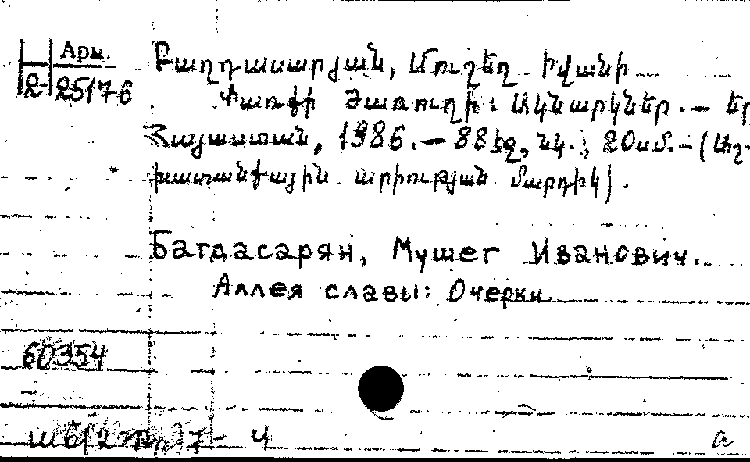 Арм.
2-25176
Բաղդասարյան, Մուշեղ Իվանի
Փառքի ծառուղի: Ակնարկներ.— Եր
Հայաստան, 1986.— 88 էջ, նկ.; 20 սմ.— (Աշ-
խատանքային արիության մարդիկ).
Багдасарян, Мушег Иванович.
Аллея славы: Очерки
60354
а